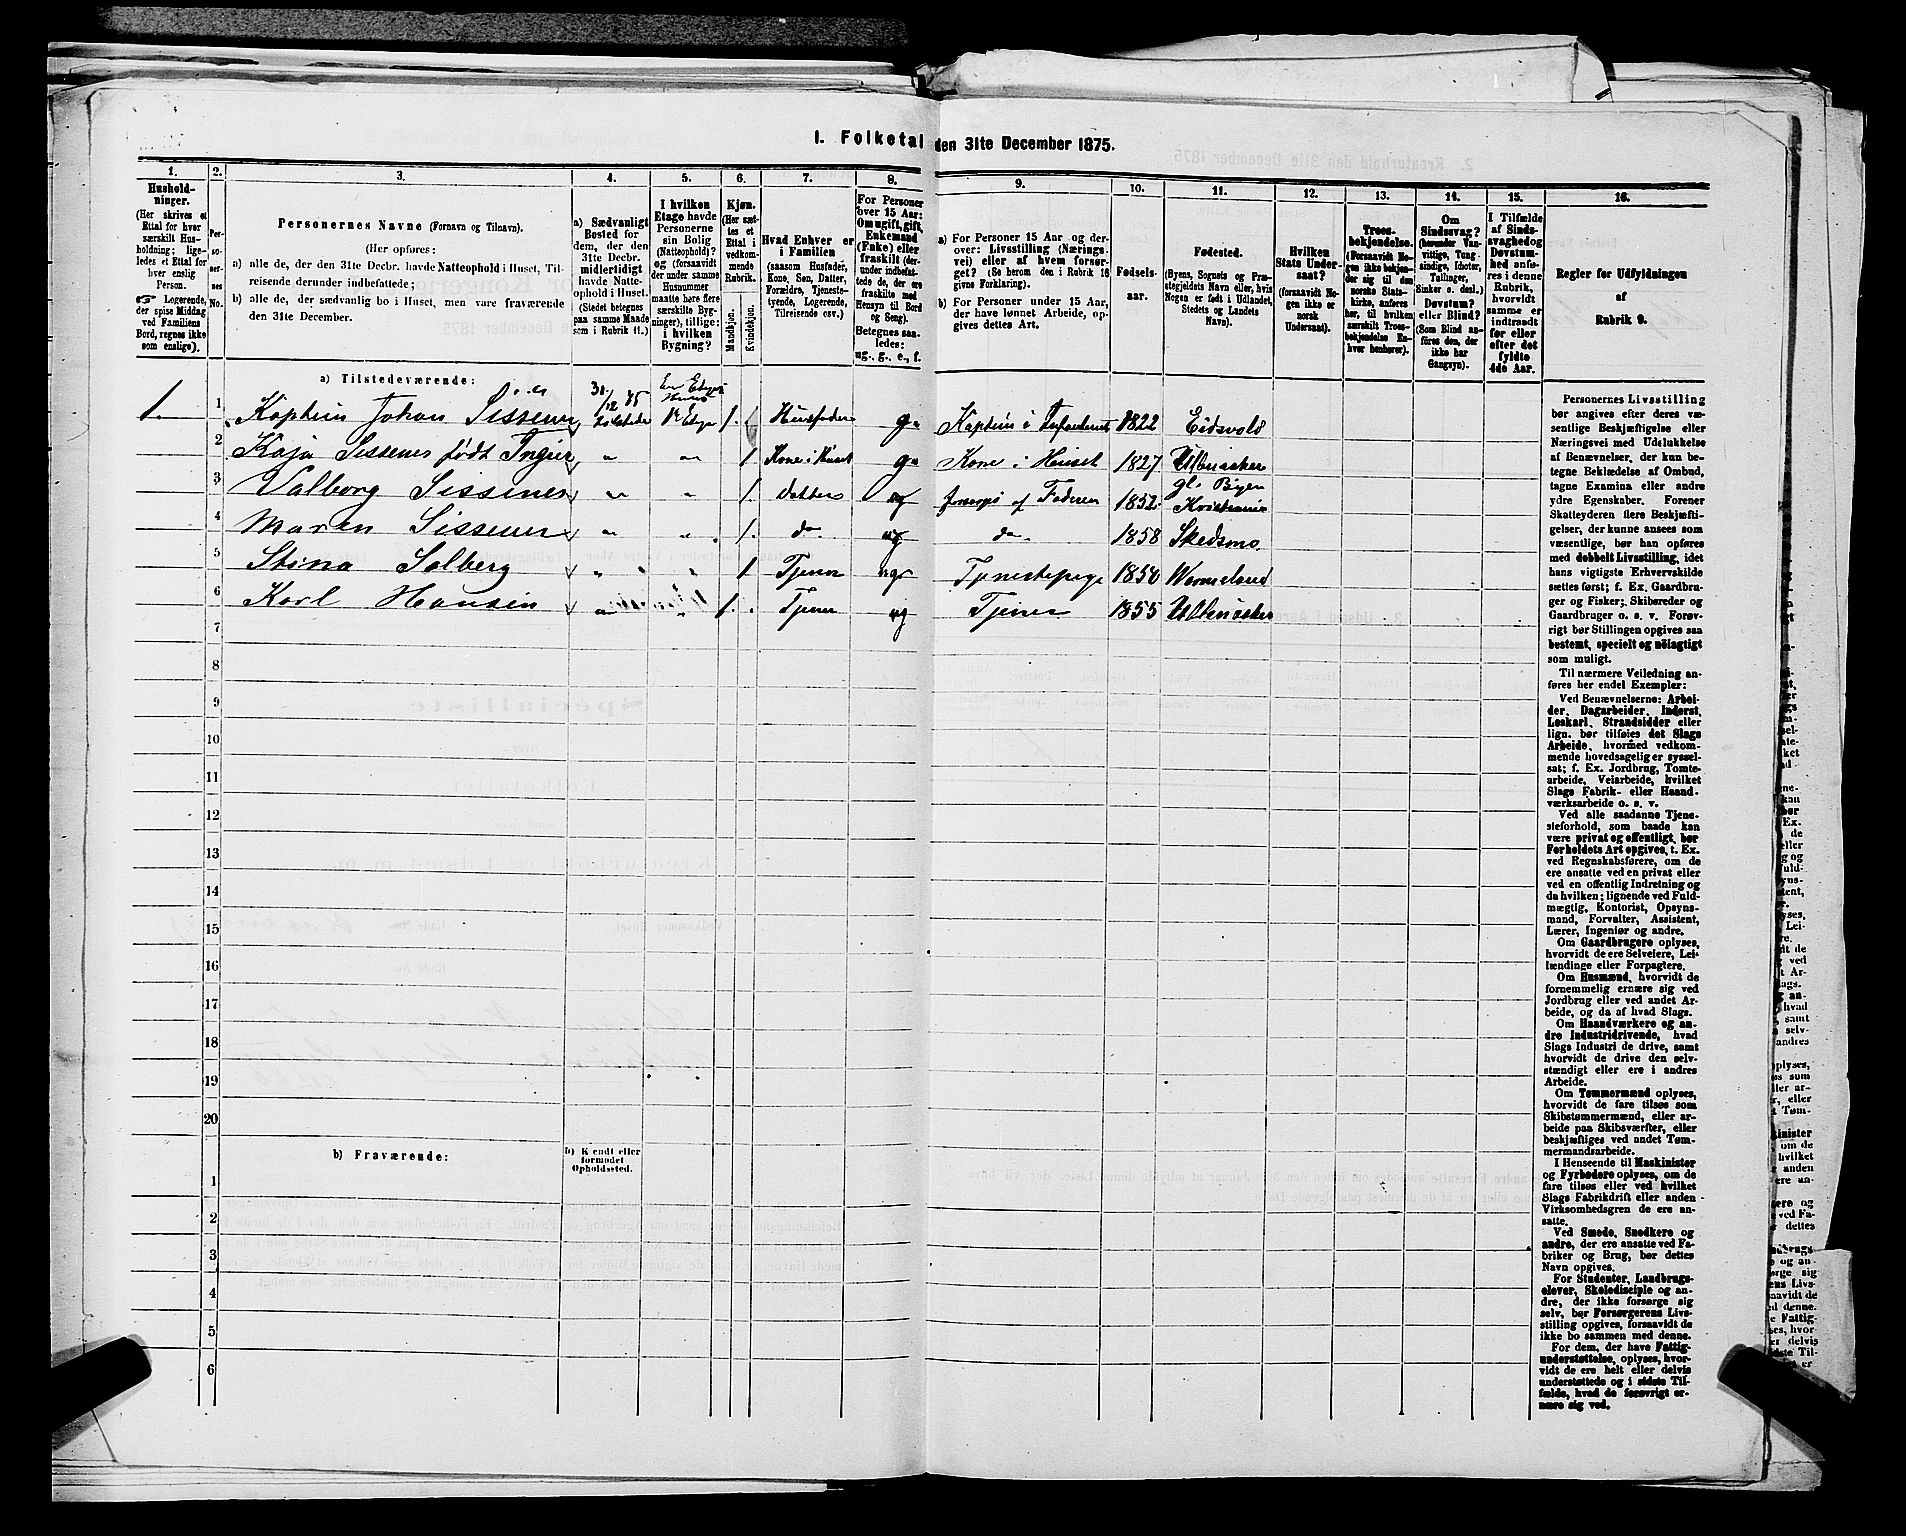 1. Folketal den 31te December 1875.
1. 2. 3. 4. 5. 6. 7. 8. 9. 10. 11. 12. 13. 14. 15. 16.
Hushold-
ninger.
(Her skrives et
Ettal for hver
særskilt Hus-
holdning; lige-
ledes et Ettal for
hver enslig
Person.
☞ Logerende,
der spise Middag
ved Familiens
Bord, regnes ikke
som enslige).
Per-
so-
ner-
nes
No.
Personernes Navne (Fornavn og Tilnavn).
(Her opføres:
a) alle de, der den 31te Decbr. havde Natteophold i Huset, Til-
reisende derunder indbefattede;
b) alle de, der sædvanlig bo i Huset, men vare fraværende
den 31te December.
a) Sædvanligt
Bosted for
dem, der den
31te Decbr.
midlertidigt
havde Natte-
ophold i Huset.
(Stedet betegnes
paa samme Maade
som i Rubrik 11.)
I hvilken
Etage havde
Personerne
sin Bolig
(Natteophold)?
og (forsaavidt
der under samme
Husnummer
maatte høre flere
særskilte Byg-
ninger), tillige:
i hvilken
Bygning?
Kjøn.
(Her sæt-
tes et
Ettal i
vedkom-
mende
Rubrik.
Mandkjøn.
Kvindekjøn.
Hvad Enhver er
i Familien
(saasom Husfader,
Kone, Søn, Datter,
Forældre, Tjeneste-
tyende, Logerende,
Tilreisende osv.)
For Personer
over 15 Aar:
Om ugift, gift,
Enkemand
(Enke) eller
fraskilt (der-
under indbefat-
tede de, der ere
fraskilte med
Hensyn til Bord
og Seng).
Betegnes saa-
ledes:
ug., g., e., f.
a) For Personer 15 Aar og der-
over: Livsstilling (Nærings-
vei) eller af hvem forsør-
get? (Se herom den i Rubrik 16
givne Forklaring).
b) For Personer under 15 Aar,
der have lønnet Arbeide, op-
gives dettes Art.
Fødsels-
aar.
Fødested.
(Byens, Sognets og Præ-
stegjeldets Navn eller, hvis
Nogen er født i Udlandet,
Stedets og Landets
Navn).
Hvilken
Stats Under-
saat?
(forsaavidt No-
gen ikke er
norsk
Undersaat).
Troes-
bekjendelse.
(Forsaavidt No-
gen ikke bekjen-
der sig til den
norske Stats-
kirke, anføres
her, til hvilken
særskilt Troes-
bekjendelse En-
hver henhører).
Om
Sindssvag?
(herunder Van-
vittige, Tung-
sindige, Idioter,
Tullinger,
Sinker o. desl.)
Døvstum?
eller Blind?
(Som Blind an-
føres den, der
ikke har
Gangsyn).
I Tilfælde
af Sinds-
svaghed og
Døvstum-
hed anfø-
res i denne
Rubrik,
hvorvidt
samme er
indtraadt
før eller
efter det
fyldte
4de Aar.
Regler for Udfyldningen
af
Rubrik 9.
a) Tilstedeværende:
1. 1 Kaptein Johan Sissener 1 Husfader g. Kaptein i Infanteriet 1822 Eidsvold
2 Kaja Sissener født 1 Kone i Huset g. Kone i Huset 1827 Ullensaker
3 Valborg Sissener 1 datter ug forsørges af Faderen 1852 Kristiania
4 Maren Sissener 1. do ug do 1858 Skedsmo
5 Stina Solberg 1 Tjener ug Tjenestepige 1850 Wermeland
6 Karl Hansen 1. Tjener ug Tjener 1855 Ullensaker
7
8
9
10
11
12
13
14
15
16
17
18
19
20
b) Fraværende:
b) Kendt eller
formodet
Opholdssted.
1
2
3
4
5
6
Personernes Livsstilling
bør angives efter deres væ-
sentlige Beskjæftigelse eller
Næringsvei med Udelukkelse
af Benævnelser, der kun be-
tegne Beklædelse af Ombud,
tagne Examina eller andre
ydre Egenskaber. Forener
Skatteyderen flere Beskjæfti-
gelser, der kunne ansees som
væsentlige, bør han opføres
med dobbelt Livsstilling, idet
hans vigtigste Erhvervskilde
sættes først; f. Ex. Gaardbru-
ger og Fisker; Skibsreder og
Gaardbruger o. s. v. Forøv-
rigt bør Stillingen opgives saa
bestemt, specielt og nöiagtigt
som muligt.
Til nærmere Veiledning an-
føres her endel Exempler:
Ved Benævnelserne: Arbei-
der, Dagarbeider, Inderst,
Løskarl, Strandsidder eller
lign. bør tilføies det Slags
Arbeide, hvormed vedkom-
mende hovedsagelig er syssel-
sat; f. Ex. Jordbrug, Tomte-
arbeide, Veiarbeide, hvilket
Slags Fabrik- eller Haand-
værksarbeide o. s. v.
Ved alle saadanne Tjene-
steforhold, som baade kan
være privat og offentligt, bør
Forholdets Art opgives, t. Ex.
ved Regnskabsførere, om de
ere ansatte ved en privat eller
ved en offentlig Indretning og
da hvilken; lignende ved Fuld-
mægtig, Kontorist, Opsyns-
mand, Forvalter, Assistent,
Lærer, Ingeniør og andre.
Om Gaardbrugere oplyses,
hvorvidt de ere Selveiere, Lei-
lændinge eller Forpagtere.
Om Husmænd, hvorvidt de
fornemmelig ernære sig ved
Jordbrug eller ved andet Ar-
beide, og da af hvad Slags.
Om Haandværkere og an-
dre Industridrivende, hvad
Slags Industri de drive, samt
hvorvidt de drive den selv-
stændigt eller ere i andres
Arbeide.
Om Tømmermænd oplyses,
hvorvidt de fare tilsøs som
Skibstømmermænd, eller ar-
beide paa Skibsværfter, eller
beskjæftiges ved andet Tøm-
mermandsarbeide.
I Henseende til Maskinister
og Fyrbødere oplyses, om de
fare tilsøs eller ved hvilket
Slags Fabrikdrift eller anden
Virksomhedsgren de ere an-
satte.
Ved Smede, Snedkere og
andre, der ere ansatte ved Fa-
briker og Brug, bør dettes
Navn opgives.
For Studenter, Landbrugs-
elever, Skoledisciple og an-
dre, der ikke forsørge sig
selv, bør Forsørgerens Livs-
stilling opgives, forsaavidt de
ikke bo sammen med denne.
For dem, der have Fattig-
understøttelse, oplyses, hvor-
vidt de ere helt eller delvis
understøttede og i sidste Til-
fælde, hvad de forøvrigt er-
nære sig ved.